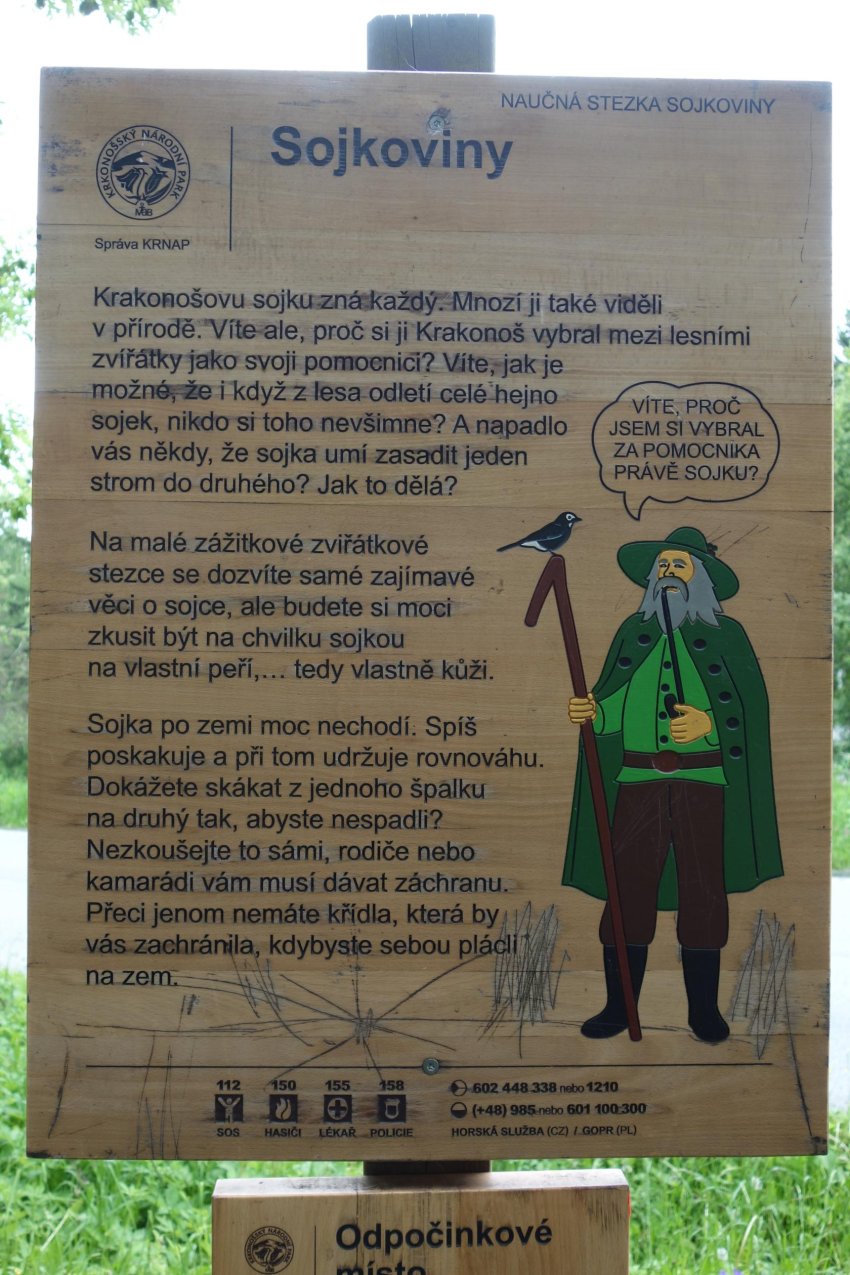 NAUČNÁ STEZKA SOJKOVINY
KRKONOŠSKÝ NÁRODNÍ PARK
MaB
Správa KRNAP
Sojkoviny
Krakonošovu sojku zná každý. Mnozí ji také viděli
v přírodě. Víte ale, proč si ji Krakonoš vybral mezi lesními
zvířátky jako svoji pomocnici? Víte, jak je
možné, že i když z lesa odletí celé hejno
sojek, nikdo si toho nevšimne? A napadlo
vás někdy, že sojka umí zasadit jeden
strom do druhého? Jak to dělá?
VÍTE, PROČ
JSEM SI VYBRAL
ZA POMOCNÍKA
PRÁVĚ SOJKU?
Na malé zážitkové zviřátkové
stezce se dozvíte samé zajímavé
věci o sojce, ale budete si moci
zkusit být na chvilku sojkou
na vlastní peří,... tedy vlastně kůži.
Sojka po zemi moc nechodí. Spíš
poskakuje a při tom udržuje rovnováhu.
Dokážete skákat z jednoho špalku
na druhý tak, abyste nespadli?
Nezkoušejte to sámi, rodiče nebo
kamarádi vám musí dávat záchranu.
Přeci jenom nemáte křídla, která by
vás zachránila, kdybyste sebou plácli
na zem.
112 150 155 158
SOS HASIČI LÉKAŘ POLICIE
602 448 338 nebo 1210
(+48) 985 nebo 601 100 300
HORSKÁ SLUŽBA (CZ) / GOPR (PL)
KRKONOŠSKÝ NÁRODNÍ PARK
Odpočinkové
místo